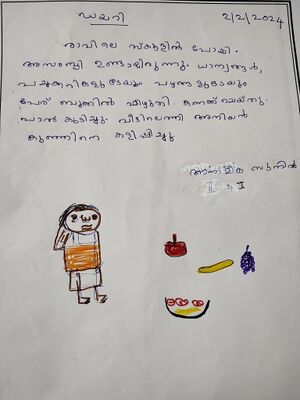 ഡയറി
2/2/2024
രാവിലെ സ്കൂളിൽ പോയി.
അസംബ്ലി ഉണ്ടായിരുന്നു. ധാന്യങ്ങൾ,
പച്ചക്കറികളുടേയും പഴങ്ങളുടേയും
പേര് ബുക്കിൽ എഴുതി. കണക്ക് ചെയ്തു.
പാൽ കുടിച്ചു. വീട്ടിലെത്തി അനിയൻ
കുഞ്ഞിനെ കളിപ്പിച്ചു
അനാമിക സുനിൽ